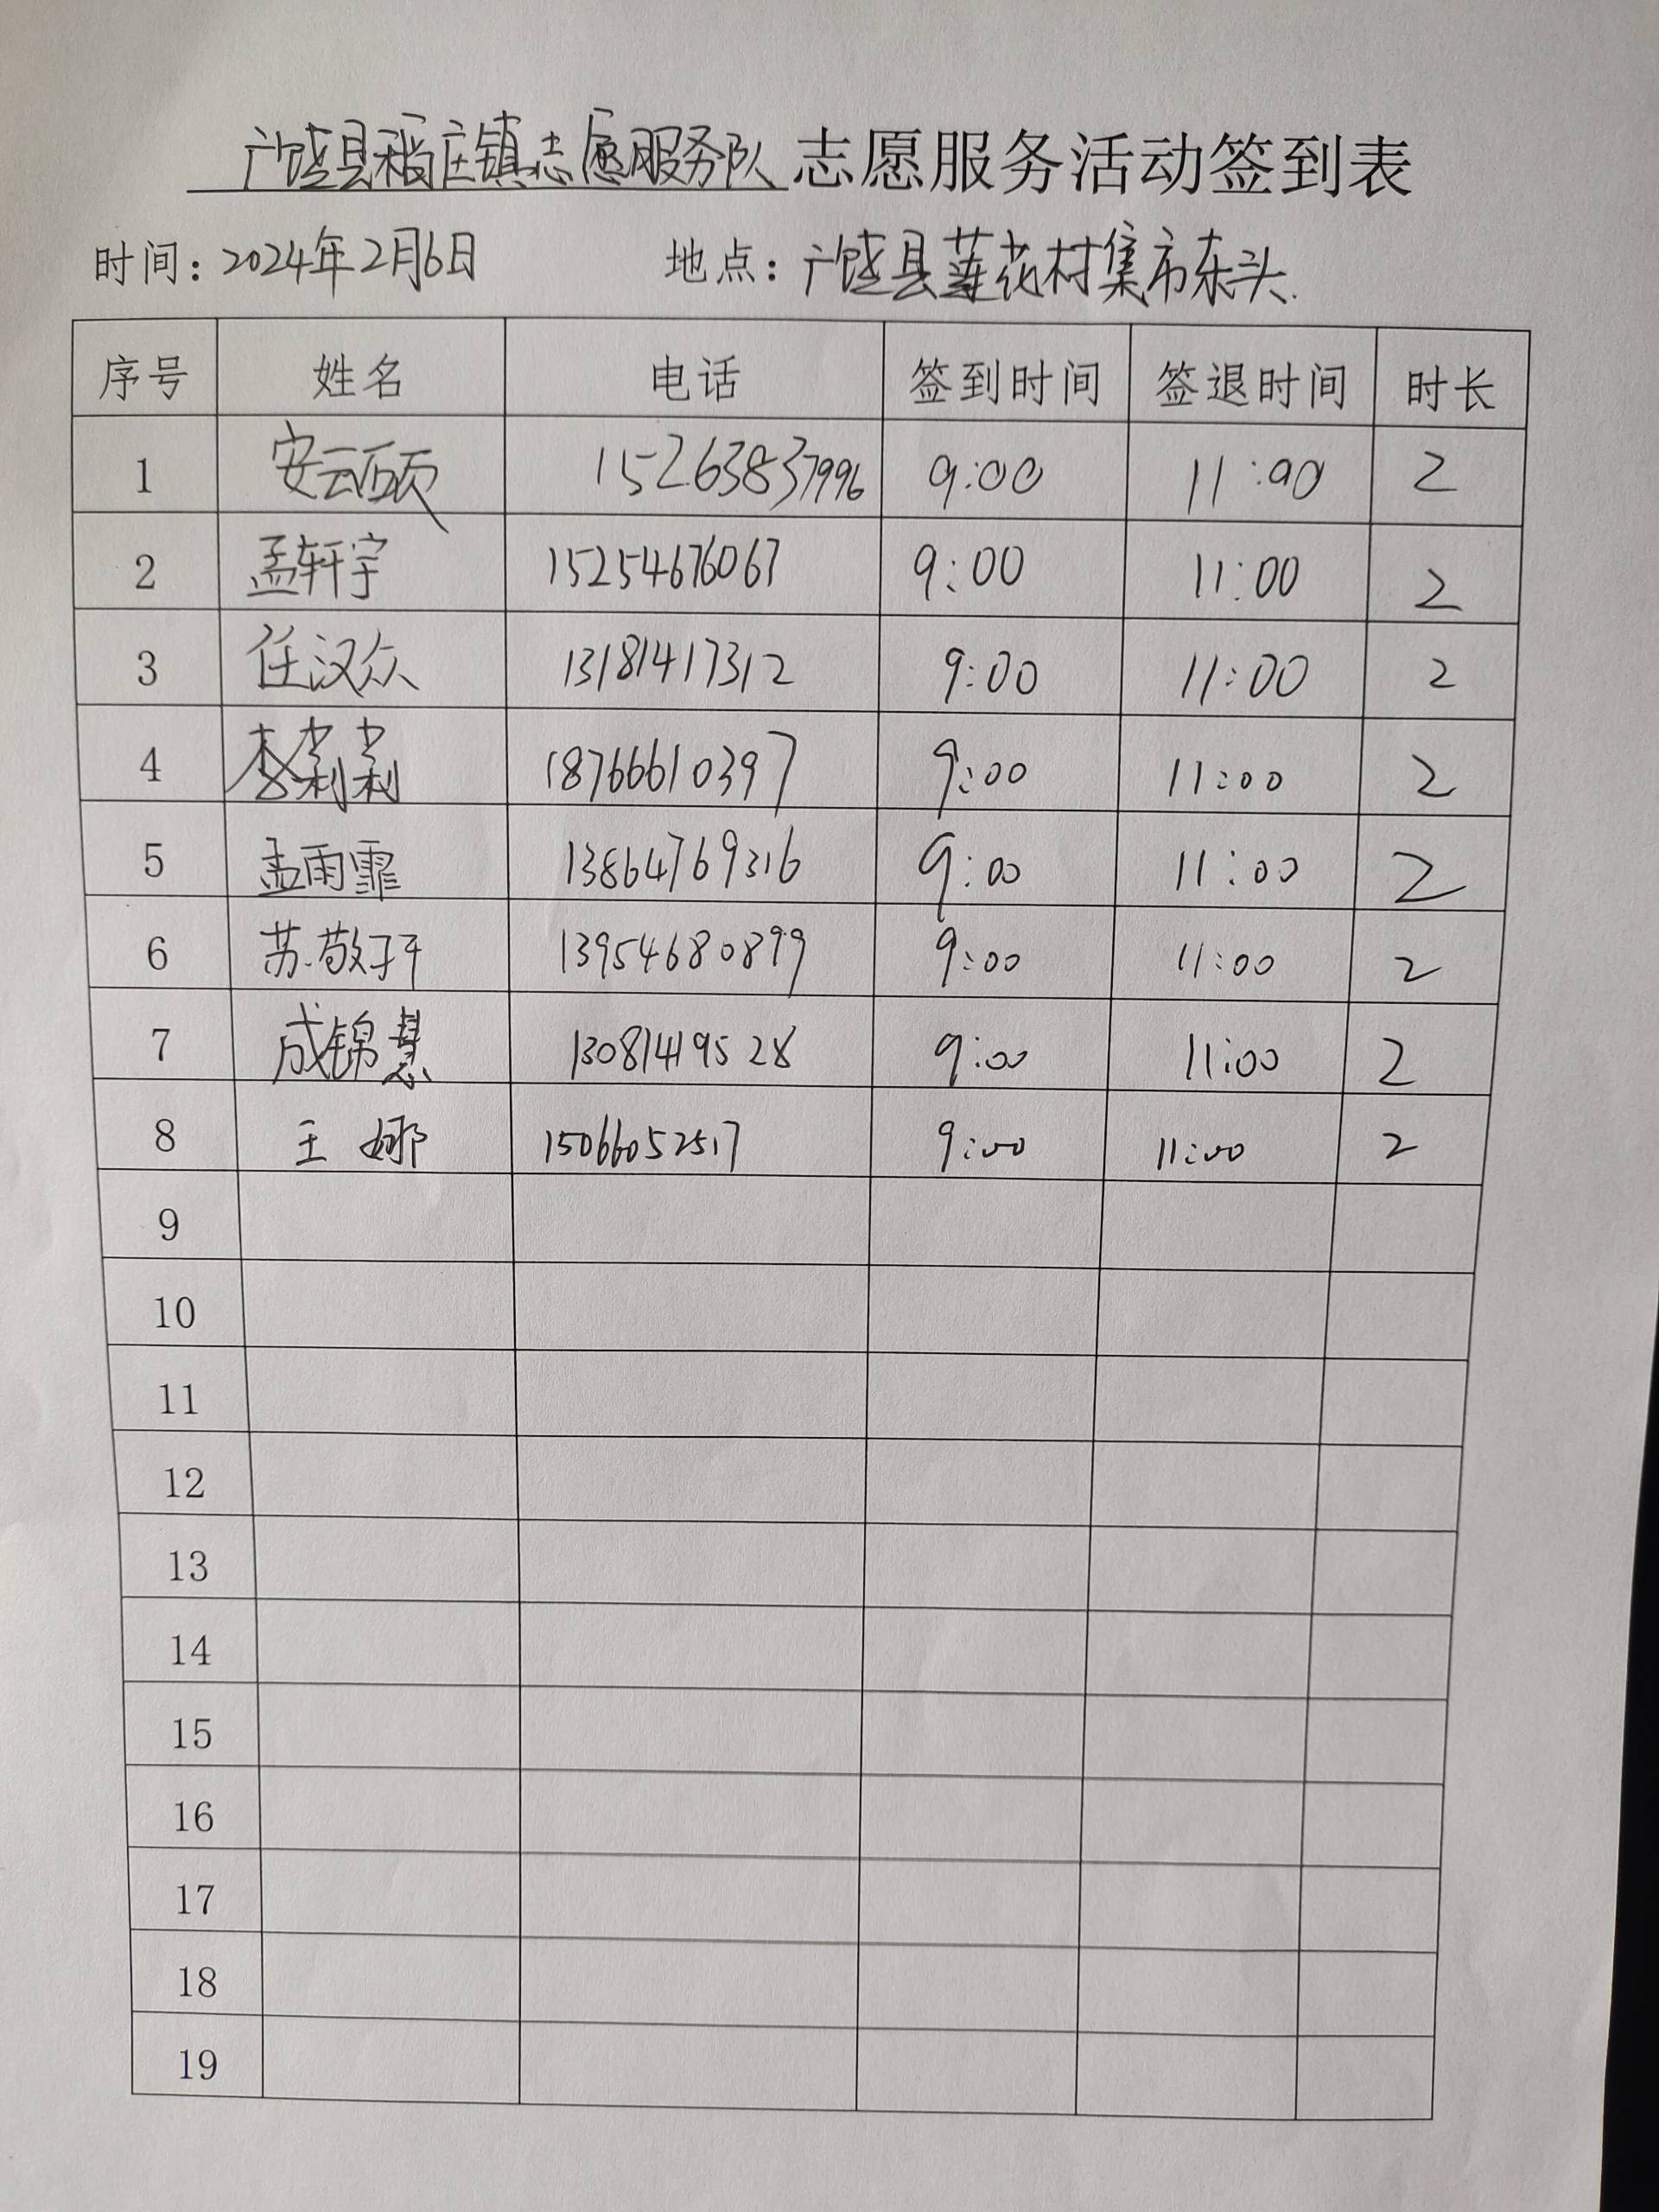 广饶县稻庄镇志愿服务队志愿服务活动签到表
时间：2024年2月6日 地点：广饶县莲花村集市东头.
序号 姓名 电话 签到时间 签退时间 时长
1 安云硕 15263837996 9:00 11:00 2
2 孟轩宇 15254676067 9:00 11:00 2
3 任汉众 13181417312 9:00 11:00 2
4 18766610397 9:00 11:00 2
5 孟雨霏 13864769316 9:00 11:00 2
6 苏敬子 13954680899 9:00 11:00 2
7 成锦慧 13081419528 9:00 11:00 2
8 王娜 15066052517 9:00 11:00 2
9
10
11
12
13
14
15
16
17
18
19